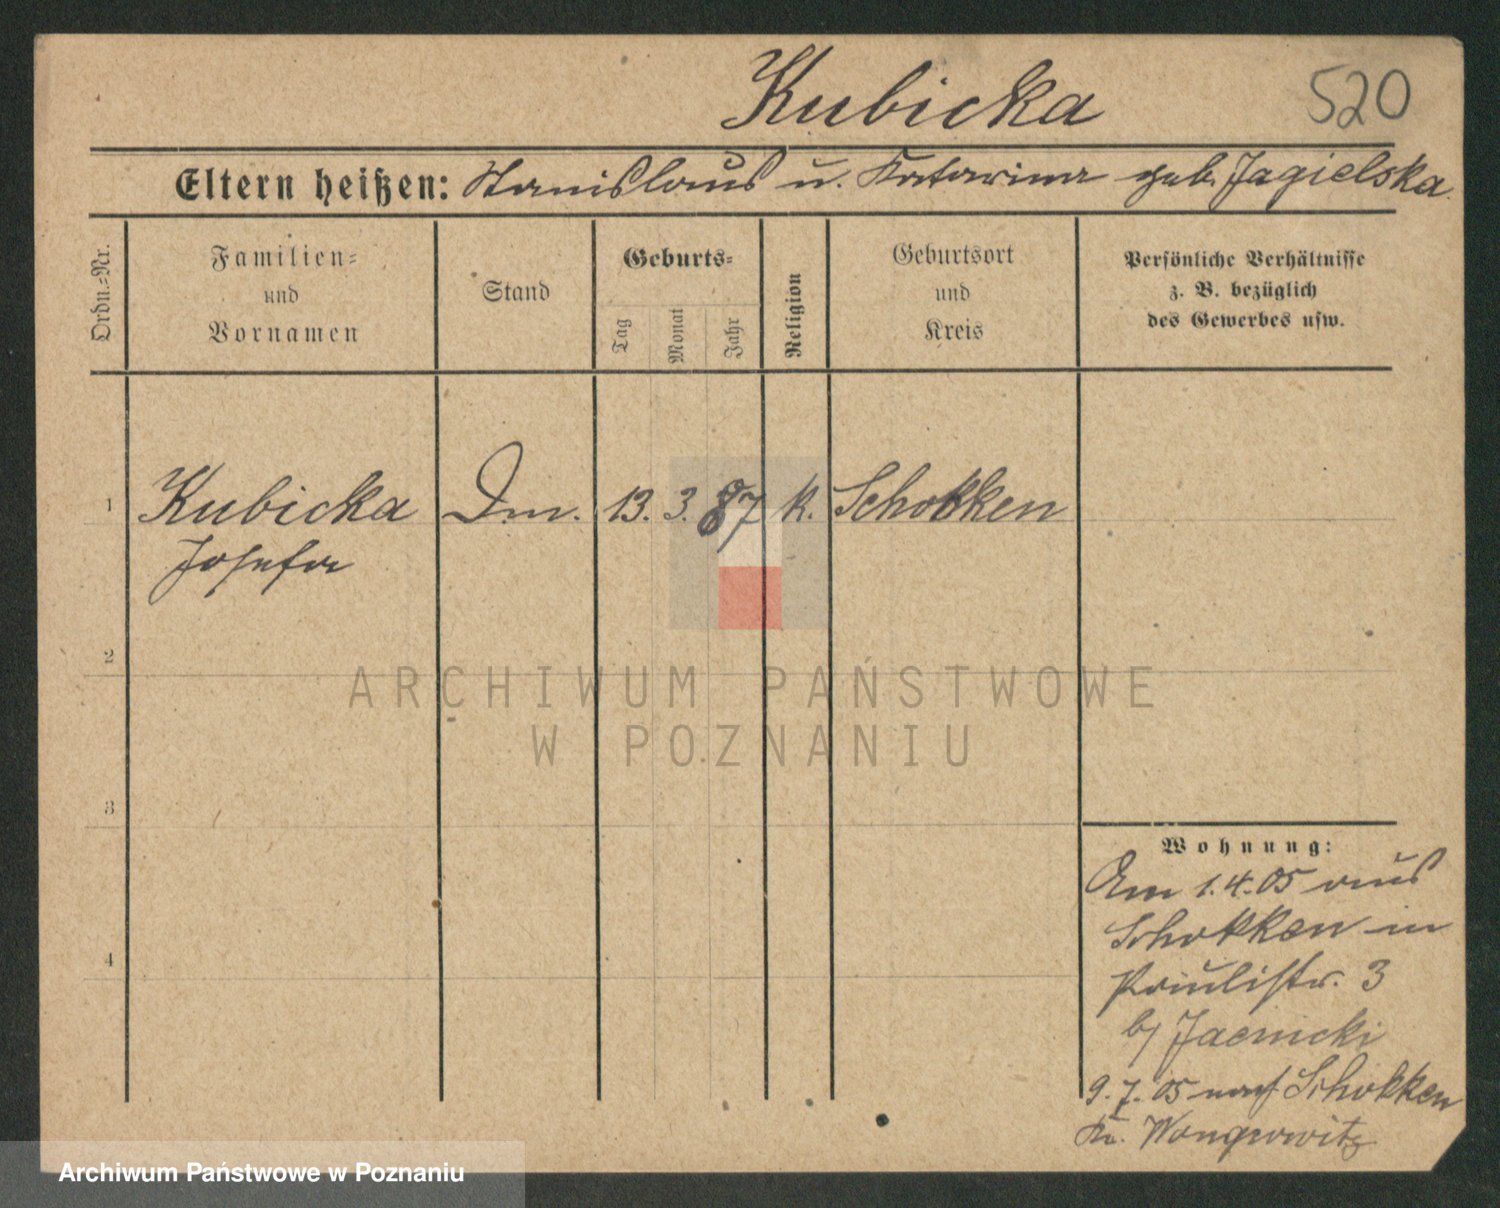 Kubicka 520
Eltern heißen: Stanislaus u. Katarina geb. Jagielska
Ordn.-Nr.
Familien-
und
Vornamen
Stand
Geburts-
Tag
Monat
Jahr
Religion
Geburtsort
und
Kreis
Persönliche Verhältnisse
z. B. bezüglich
des Gewerbes usw.
1 Kubicka 13. 3. 87 k. Schokken
Josefa
2
ARCHIWUM PAŃSTWOWE
W POZNANIU
3
Wohnung:
Am 1.4.05 aus
Schokken in
Paulistr. 3
b/ Jaenicki
4
9.7.05 nach Schokken
Kr. Wongrowitz
Archiwum Państwowe w Poznaniu